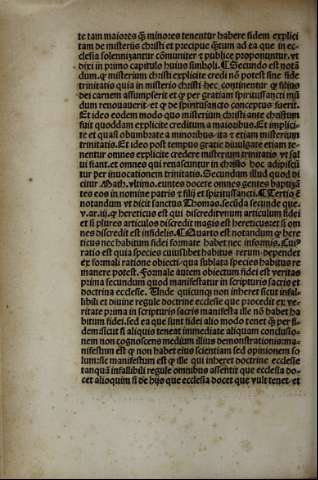 te tam maiores q̃ minores tenentur habere fidem explici
tam de misteriis christi et precipue q̃tum ad ea que in ec-
clesia solennizantur cõmuniter ⁊ publice proponuntur. vt
dixi in primo capitulo huius simboli. ¶ Secundo est notã
dum. ꝙ misterium christi explicite credi nõ potest sine fide
trinitatis quia in misterio christi hec continentur ꝙ filius
dei carnem assumpserit et ꝙ per gratiam spiritussancti mũ
dum renouauerit. et ꝙ de spiritusancto conceptus fuerit.
Et ideo eodem modo quo misterium christi ante christum
fuit quoddam explicite creditum a maioribus. Et implici-
te et quasi obumbrate a minoribus. ita ⁊ etiam misterium
trinitatis. Et ideo post tempus gratie diuulgate etiam te-
nentur omnes explicite credere misterium trinitatis vt sal
ui fiant. et omnes qui renascuntur in christo hoc adipiscũ
tur per inuocationem trinitatis. Secundum illud quod di
citur Math. vltimo. euntes docete omnes gentes baptizã
tes eos in nomine patris ⁊ filij et spiritussancti. ¶ Tertio ẽ
notandum vt dicit sanctus Thomas. secũda secunde que.
v. ar. iii. ꝙ hereticus est qui discredit vnum articulum fidei
et si plures articulos discredit magis est hereticus et si om
nes discredit est infidelis. ¶ Quarto est notandum ꝙ here
ticus nec habitum fidei formate habet nec informis. Cui9
ratio est quia species cuiuslibet habitus rerum dependet
ex formali ratione obiecti. qua sublata species habitus re
manere potest. Formale autem obiectum fidei est veritas
prima secundum quod manifestatur in scripturis sacris et
doctrina ecclesie. Unde quicunq̃ non inheret sicut infal-
libili et diuine regule doctrine ecclesie que procedit ex ve-
ritate prima in scripturis sacris manifesta ille nõ habet ha
bitum fidei. sed ea que sunt fidei alio modo tenet ꝙ per fi-
dem. sicut si aliquis teneat immediate aliquam conclusio-
nem non cognoscens medium illius demonstrationis: ma-
nifestum est ꝙ non habet eius scientiam sed opinionem so
lum: sic manifestum est ꝙ ille qui inheret doctrine ecclesie
tanquã infallibili regule omnibus assentit que ecclesia do-
cet alioquim si de hijs que ecclesia docet que vult tenet et